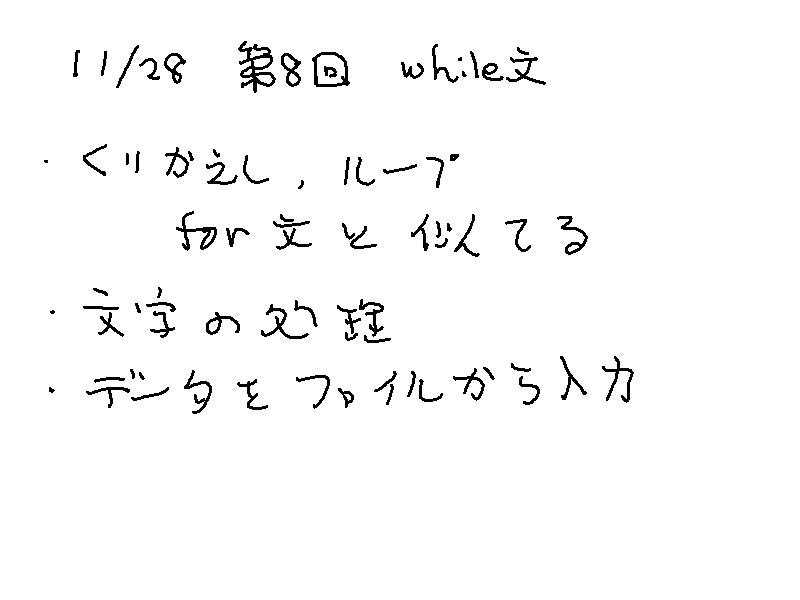 11/28 第8回 while文
・くりかえし、ループ
for文と似てる
・文字の処理
・データをファイルから入力